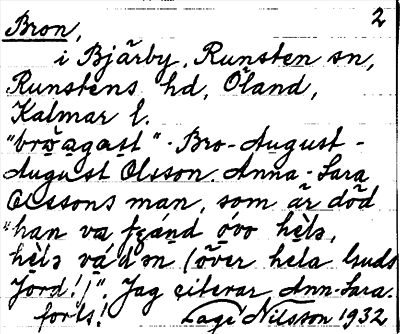 2
Bron,
i Bjärby, Runsten sn,
Runstens hd, Öland,
Kalmar l.
"brωagast" - Bro-August -
August Olsson. Anna-Sara
Olssons man, som är död
"han va fzánd óvo hèlə,
hèlə vádən (över hela Guds
Jord!)". Jag citerar Ann-Sara.
forts! Lage Nilsson 1932